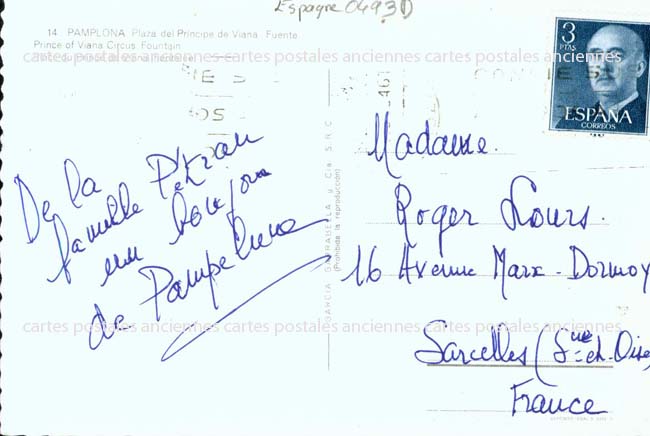 Espagne 0493D
14. PAMPLONA Plaza del Príncipe de Viana. Fuente
Prince of Viana Circus. Fountain
cartes postales anciennes cartes postales anciennes cartes postales anciennes
3
PTAS
ESPAÑA
CORREOS
De la
famille
un bonjour
de Pampelune
GARCIA GARRABELLA y Cía. S.R.C.
(Prohibida la reproducción)
Madame.
Roger Lours.
16 Avenue Marx-Dormoy
Sarcelles (Sne-et-Oise)
France
cartes postales anciennes cartes postales anciennes cartes postales anciennes